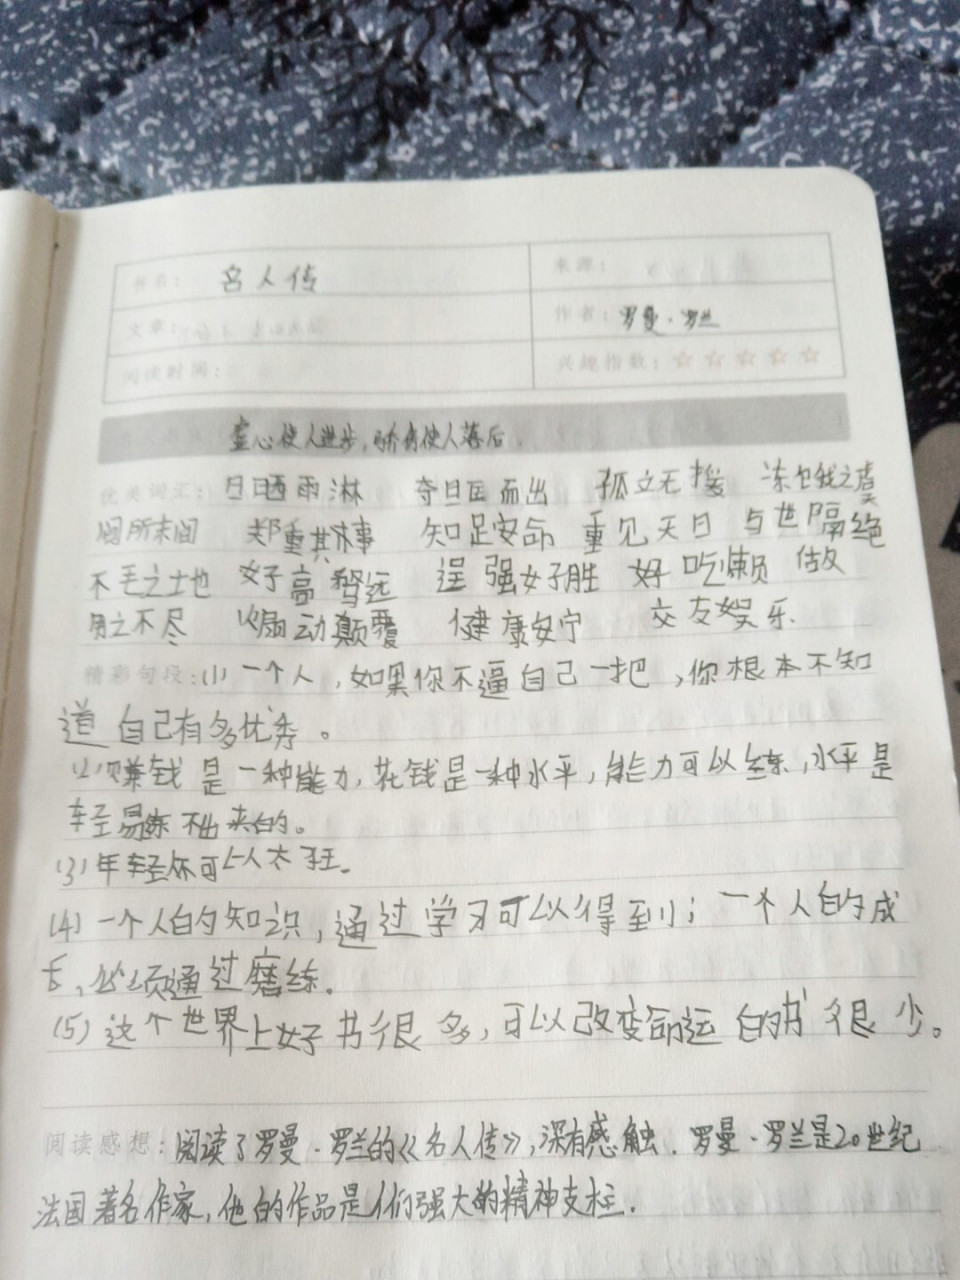 书名: 名人传
来源:
文章:
作者: 罗曼·罗兰
阅读时间:
兴趣指数: ☆☆☆☆☆
虚心使人进步,骄傲使人落后.
优美词汇: 日晒雨淋 夺眶而出 孤立无援
闻所未闻 郑重其事 知足安命 重见天日 与世隔绝
不毛之地 好高骛远 逞强好胜 好吃懒做
用之不尽 煽动颠覆 健康安宁 交友娱乐.
精彩句段:(1)一个人,如果你不逼自己一把,你根本不知
道自己有多优秀。
(2)赚钱是一种能力,花钱是一种水平,能力可以练,水平是
轻易练不出来的。
(3)年轻你可以太狂.
(4)一个人的知识,通过学习可以得到;一个人的成
长,必须通过磨练.
(5)这个世界上好书很多,可以改变命运的书很少。
阅读感想:阅读了罗曼·罗兰的《名人传》,深有感触.罗曼·罗兰是20世纪
法国著名作家,他的作品是人们强大的精神支柱.